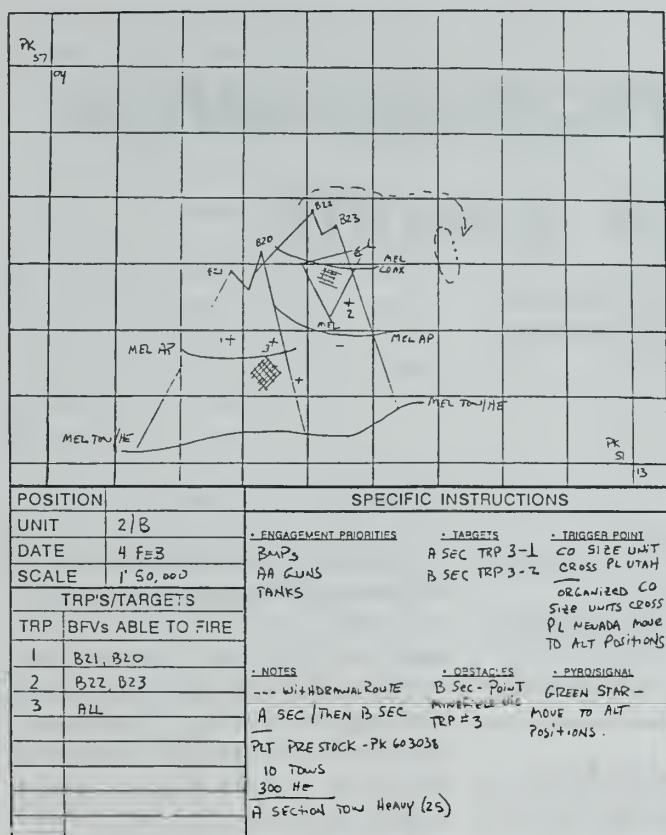 PK
57
04
B22
B23
B20
MEL
COAX
2
MEL
1
3
MEL AP
MEL AP
MEL TOW/HE
MEL TOW/HE
PK
51
13
POSITION
UNIT 2/B
DATE 4 FEB
SCALE 1' 50,000
TRP'S/TARGETS
TRP BFVs ABLE TO FIRE
1 B21, B20
2 B22, B23
3 ALL
SPECIFIC INSTRUCTIONS
• ENGAGEMENT PRIORITIES
BMPs
AA GUNS
TANKS
• TARGETS
A SEC TRP 3-1
B SEC TRP 3-2
• TRIGGER POINT
CO SIZE UNIT
CROSS PL UTAH
ORGANIZED CO
SIZE UNITS CROSS
PL NEVADA MOVE
TO ALT POSITIONS
• NOTES
--- WITHDRAWAL ROUTE
A SEC / THEN B SEC
PLT PRE STOCK - PK 603038
10 TOWS
300 HE
A SECTION TOW HEAVY (25)
• OBSTACLES
B SEC - POINT
MINEFIELD VIC
TRP #3
• PYRO/SIGNAL
GREEN STAR -
MOVE TO ALT
POSITIONS.